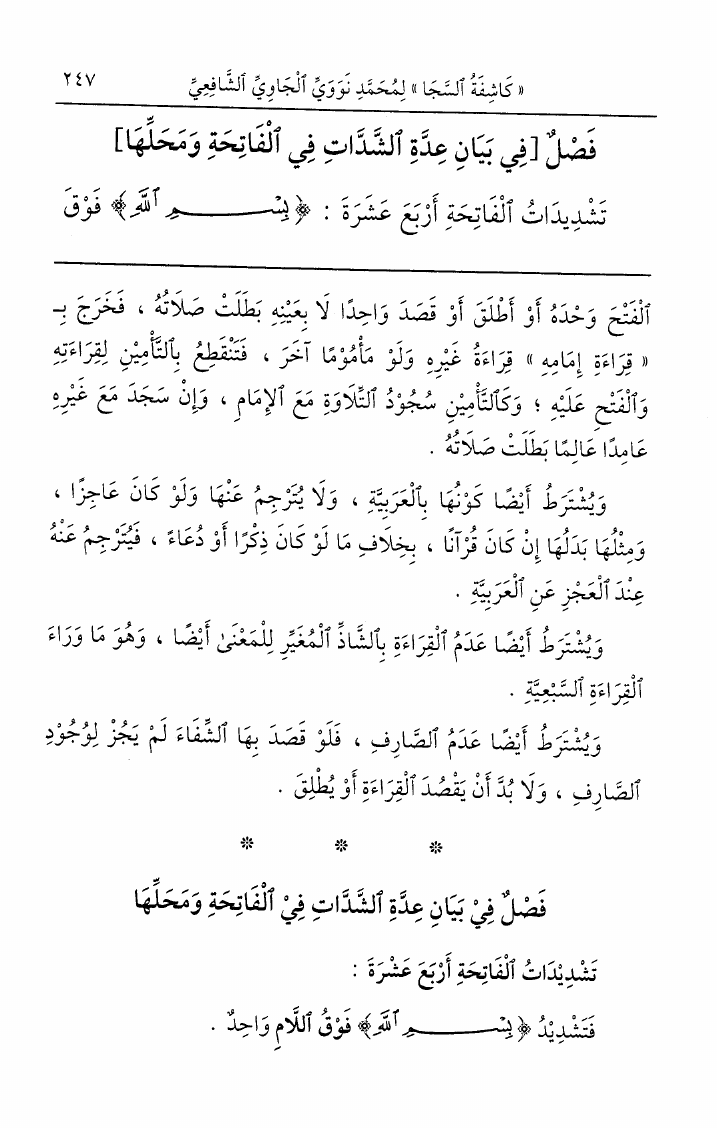 « كَاشِفَةُ ٱلسَّجَا » لِمُحَمَّدِ نَوَوَيِّ ٱلْجَاوِيِّ ٱلشَّافِعِيِّ ٢٤٧
فَصْلٌ [فِي بَيَانِ عِدَّةِ ٱلشَّدَّاتِ فِي ٱلْفَاتِحَةِ وَمَحَلِّهَا]
تَشْدِيدَاتُ ٱلْفَاتِحَةِ أَرْبَعَ عَشَرَةَ : ﴿بِسْمِ ٱللَّهِ﴾ فَوْقَ
ٱلْفَتْحَ وَحْدَهُ أَوْ أَطْلَقَ أَوْ قَصَدَ وَاحِدًا لَا بِعَيْنِهِ بَطَلَتْ صَلَاتُهُ ، فَخَرَجَ بِـ
« قِرَاءَةِ إِمَامِهِ » قِرَاءَةُ غَيْرِهِ وَلَوْ مَأْمُوْمًا آخَرَ ، فَتَنْقَطِعُ بِٱلتَّأْمِيْنِ لِقِرَاءَتِهِ
وَٱلْفَتْحِ عَلَيْهِ ؛ وَكَٱلتَّأْمِيْنِ سُجُوْدُ ٱلتِّلَاوَةِ مَعَ ٱلإِمَامِ ، وَإِنْ سَجَدَ مَعَ غَيْرِهِ
عَامِدًا عَالِمًا بَطَلَتْ صَلَاتُهُ .
وَيُشْتَرَطُ أَيْضًا كَوْنُهَا بِٱلْعَرَبِيَّةِ ، وَلَا يُتَرْجِمُ عَنْهَا وَلَوْ كَانَ عَاجِزًا ،
وَمِثْلُهَا بَدَلُهَا إِنْ كَانَ قُرْآنًا ، بِخِلَافِ مَا لَوْ كَانَ ذِكْرًا أَوْ دُعَاءً ، فَيُتَرْجِمُ عَنْهُ
عِنْدَ ٱلْعَجْزِ عَنِ ٱلْعَرَبِيَّةِ .
وَيُشْتَرَطُ أَيْضًا عَدَمُ ٱلْقِرَاءَةِ بِٱلشَّاذِّ ٱلْمُغَيِّرِ لِلْمَعْنَىٰ أَيْضًا ، وَهُوَ مَا وَرَاءَ
ٱلْقِرَاءَةِ ٱلسَّبْعِيَّةِ .
وَيُشْتَرَطُ أَيْضًا عَدَمُ ٱلصَّارِفِ ، فَلَوْ قَصَدَ بِهَا ٱلشِّفَاءَ لَمْ يَجُزْ لِوُجُوْدِ
ٱلصَّارِفِ ، وَلَا بُدَّ أَنْ يَقْصُدَ ٱلْقِرَاءَةَ أَوْ يُطْلِقَ .
* * *
فَصْلٌ فِيْ بَيَانِ عِدَّةِ ٱلشَّدَّاتِ فِيْ ٱلْفَاتِحَةِ وَمَحَلِّهَا
تَشْدِيْدَاتُ ٱلْفَاتِحَةِ أَرْبَعَ عَشْرَةَ :
فَتَشْدِيْدُ ﴿بِسْمِ ٱللَّهِ﴾ فَوْقُ ٱللَّامِ وَاحِدٌ .